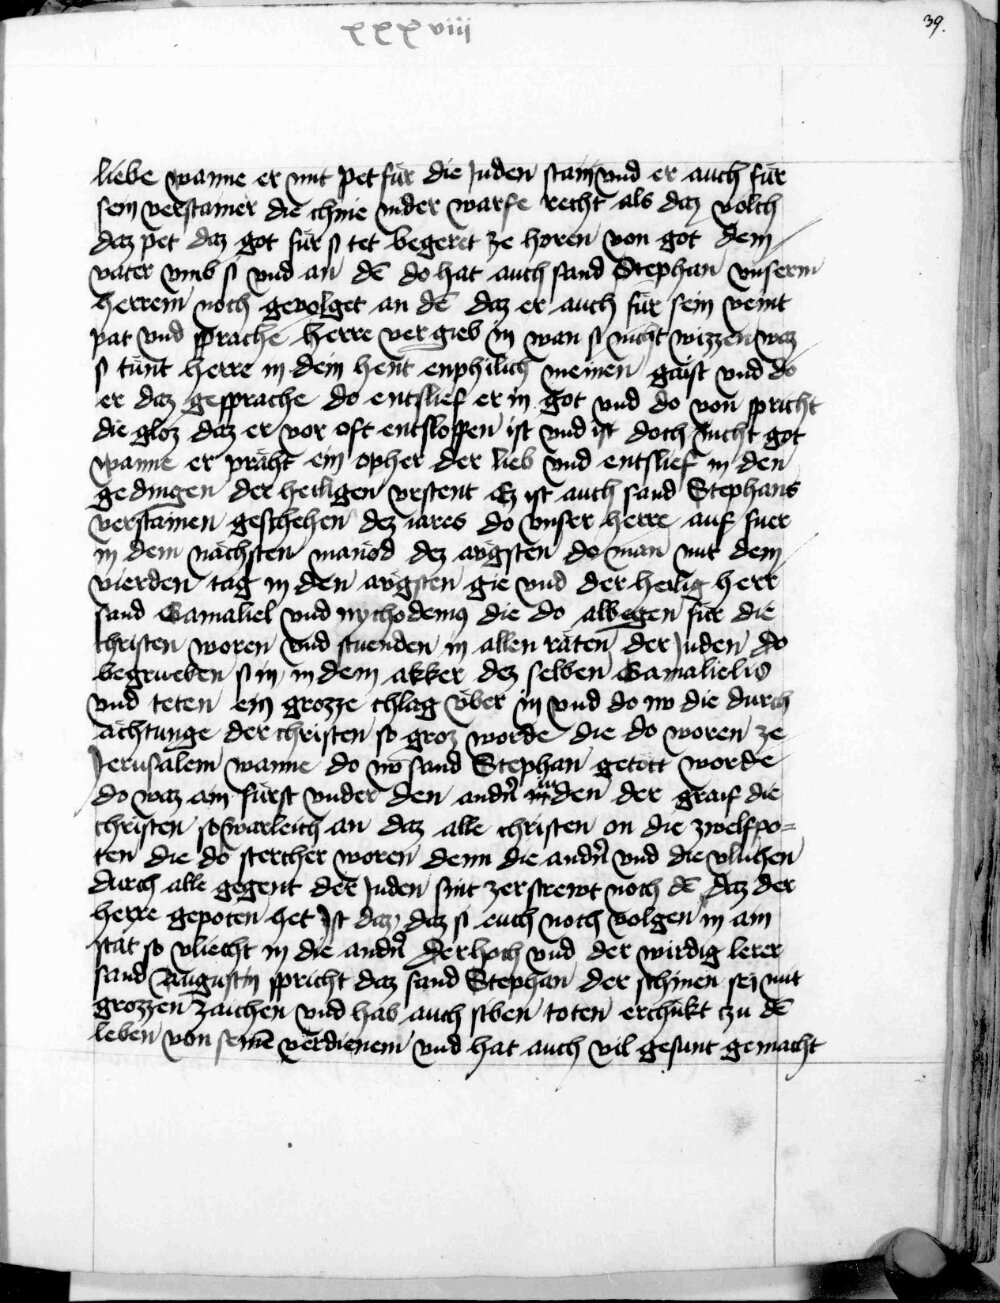 xxxviii
39.
liebe wanne er mit pet für die Juden stain vnd er auch für
sein verstainer die chnie nider warfe recht als daz volch
daz pet daz got für si tet begeret ze horen von got dem
vater vmb si vnd an dē do hat auch sand Stephan vnserm
herrem noch gevolget an dē daz er auch für sein veint
pat vnd sprache herre vergieb in wan si nicht wizzen waz
si tünt herre in dein hent enphilich meinen gaist vnd do
er daz gesprache do entslief er in got vnd do von spricht
die gloz daz er vor oft entsloffen ist vnd ist doch nicht got
wanne er präht ein opher der lieb vnd entslief in den
gedingen der heiligen vrstent Ez ist auch sand Stephans
verstainen geschehen dez iares do vnser herre auf fuer
in dem nächsten manod dez augsten do man mit dem
vierden tag in den augsten gie vnd der heilig herr
sand Gamaliel vnd nychodemus die do albegen für die
christen woren vnd stuenden in allen räten der Juden do
begrueben si in in dem akker dez selben Gamalielis
vnd teten ein grozze chlag vber in vnd do nv die durch
ächtunge der christen so groz worde die do woren ze
Jerusalem wanne do nv sand Stephan getött worde
do waz am fürst vnder den andn̄ iuden der graif die
christen so warleich an daz alle christen on die zwelfpo=
ten die do stercher woren denn die andn̄ vnd die vluhen
durch alle gegent der Juden sint zerstrewt noch dē daz der
herre gepoten het Ist daz daz si euch noch volgen in ain
stat so vliecht in die andn̄ Der hoch vnd der wirdig lerer
sand Augustin spricht daz sand Stephan der schinen sei mit
grozzen zaichen vnd hab auch siben toten erchükt czu dē
leben von seinē verdienem vnd hat auch vil gesunt gemacht